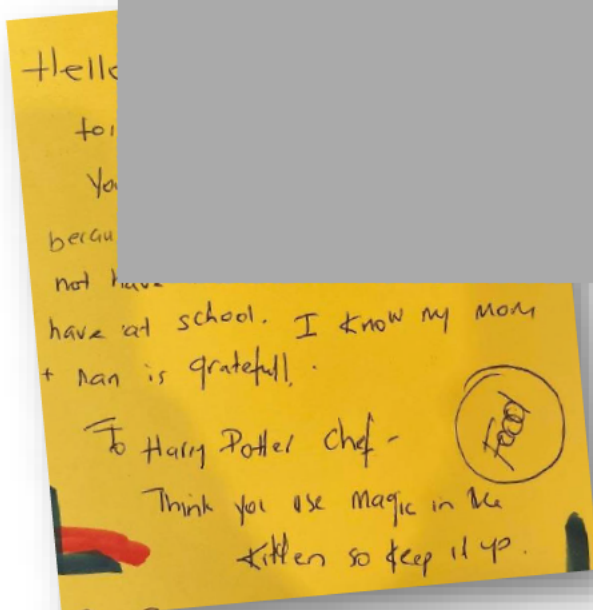 Hello
You
not have
have at school. I know my mom
+ nan is gratefull.
To Harry Potter Chef -
Food
Think you use magic in the
kitten so keep it up.